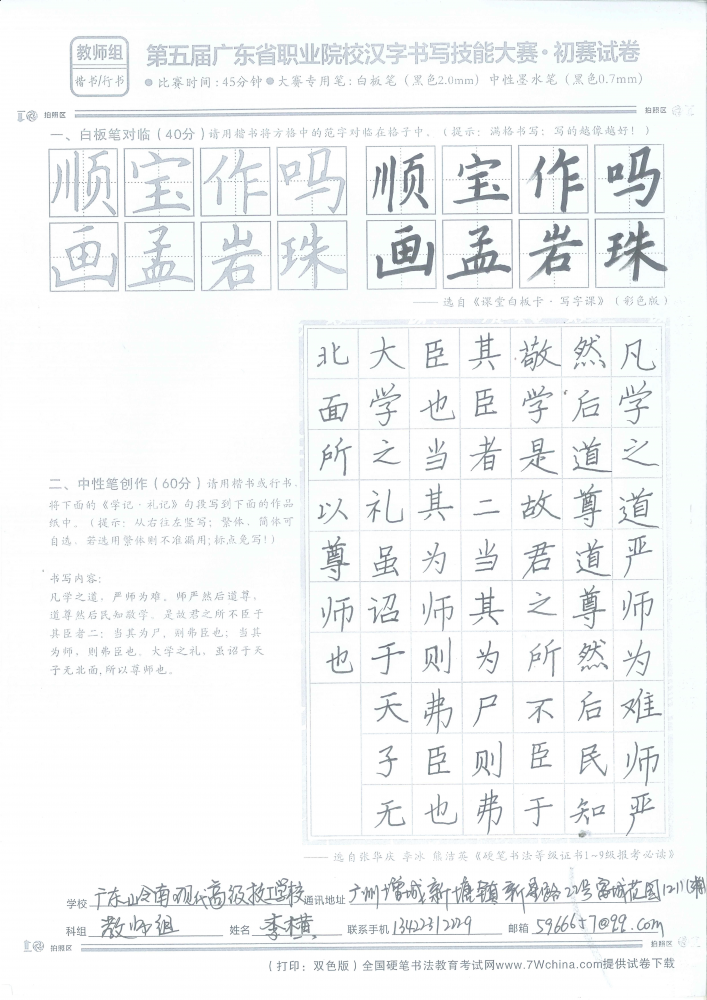 教师组
楷书/行书
第五届广东省职业院校汉字书写技能大赛·初赛试卷
●比赛时间:45分钟●大赛专用笔:白板笔（黑色2.0mm）中性墨水笔（黑色0.7mm）
拍照区 拍照区
一、白板笔对临（40分）请用楷书将方格中的范字对临在格子中。（提示：满格书写；写的越像越好！）
顺宝作吗 顺宝作吗
画孟岩珠 画孟岩珠
——选自《课堂白板卡·写字课》（彩色版）
二、中性笔创作（60分）请用楷书或行书,
将下面的《学记·礼记》句段写到下面的作品
纸中。（提示：从右往左竖写；繁体、简体可
自选，若选用繁体则不准漏用;标点免写!）
书写内容:
凡学之道，严师为难。师严然后道尊，
道尊然后民知敬学。是故君之所不臣于
其臣者二：当其为尸，则弗臣也；当其
为师，则弗臣也。大学之礼，虽诏于天
子无北面,所以尊师也。
凡学之道严师为难师严
然后道尊道尊然后民知
敬学是故君之所不臣于
其臣者二当其为尸则弗
臣也当其为师则弗臣也
大学之礼虽诏于天子无
北面所以尊师也
——选自张华庆 李冰 熊洁英《硬笔书法等级证书1~9级报考必读》
学校 广东岭南现代高级技工学校 通讯地址 广州增城新塘镇新星路22号富城花园1211
科组 教师组 姓名 李横 联系手机 13422312229 邮箱 5966657@qq.com
拍照区 拍照区
（打印：双色版）全国硬笔书法教育考试网www.7Wchina.com提供试卷下载